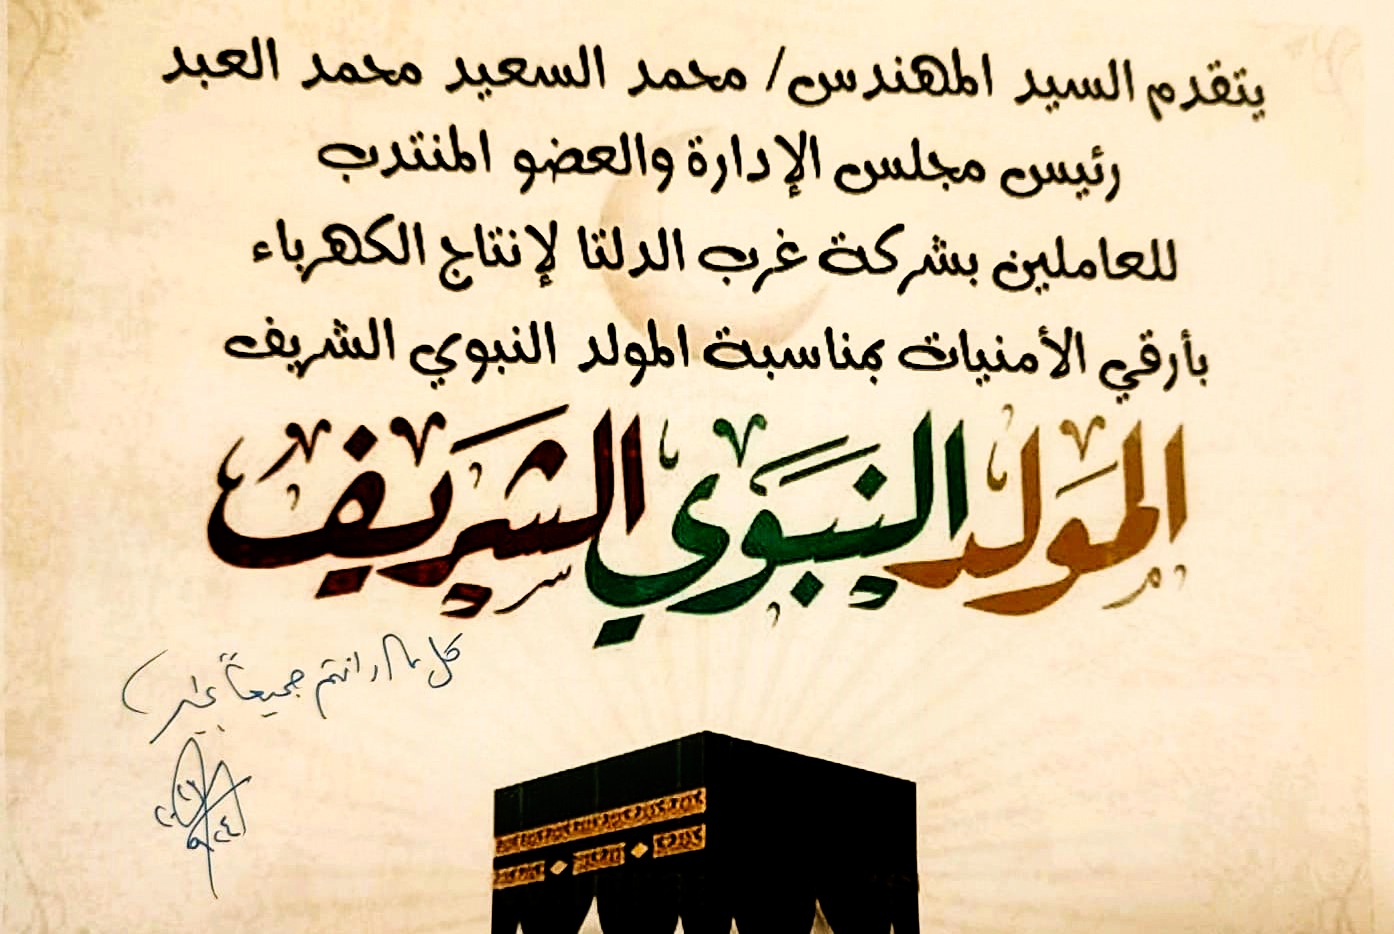 يتقدم السيد المهندس/ محمد السعيد محمد العبد
رئيس مجلس الإدارة والعضو المنتدب
للعاملين بشركة غرب الدلتا لإنتاج الكهرباء
بأرقي الأمنيات بمناسبة المولد النبوي الشريف
المولد النبوي الشريف
كل عام وانتم جميعاً بخير